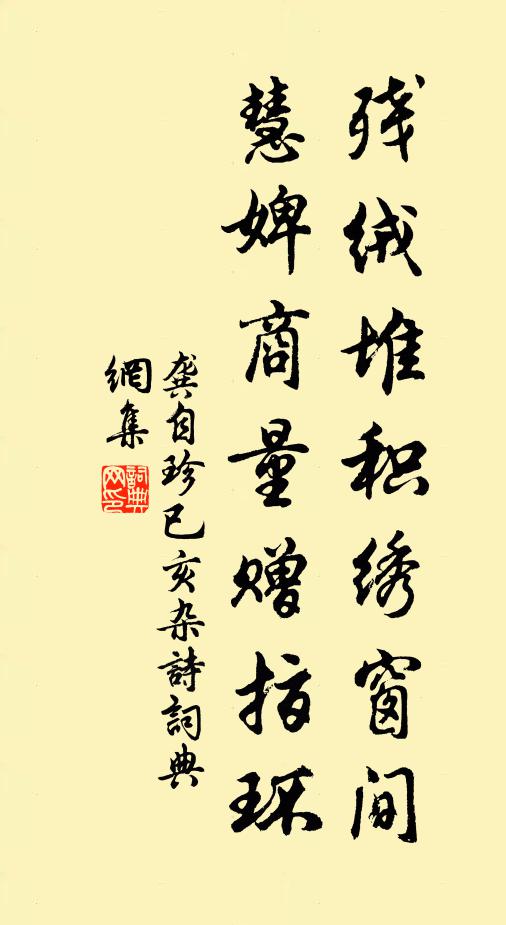 残绒堆积绣窗间
慧婢商量赠指环
龚自珍己亥杂詩詞典
網集
詞典网印